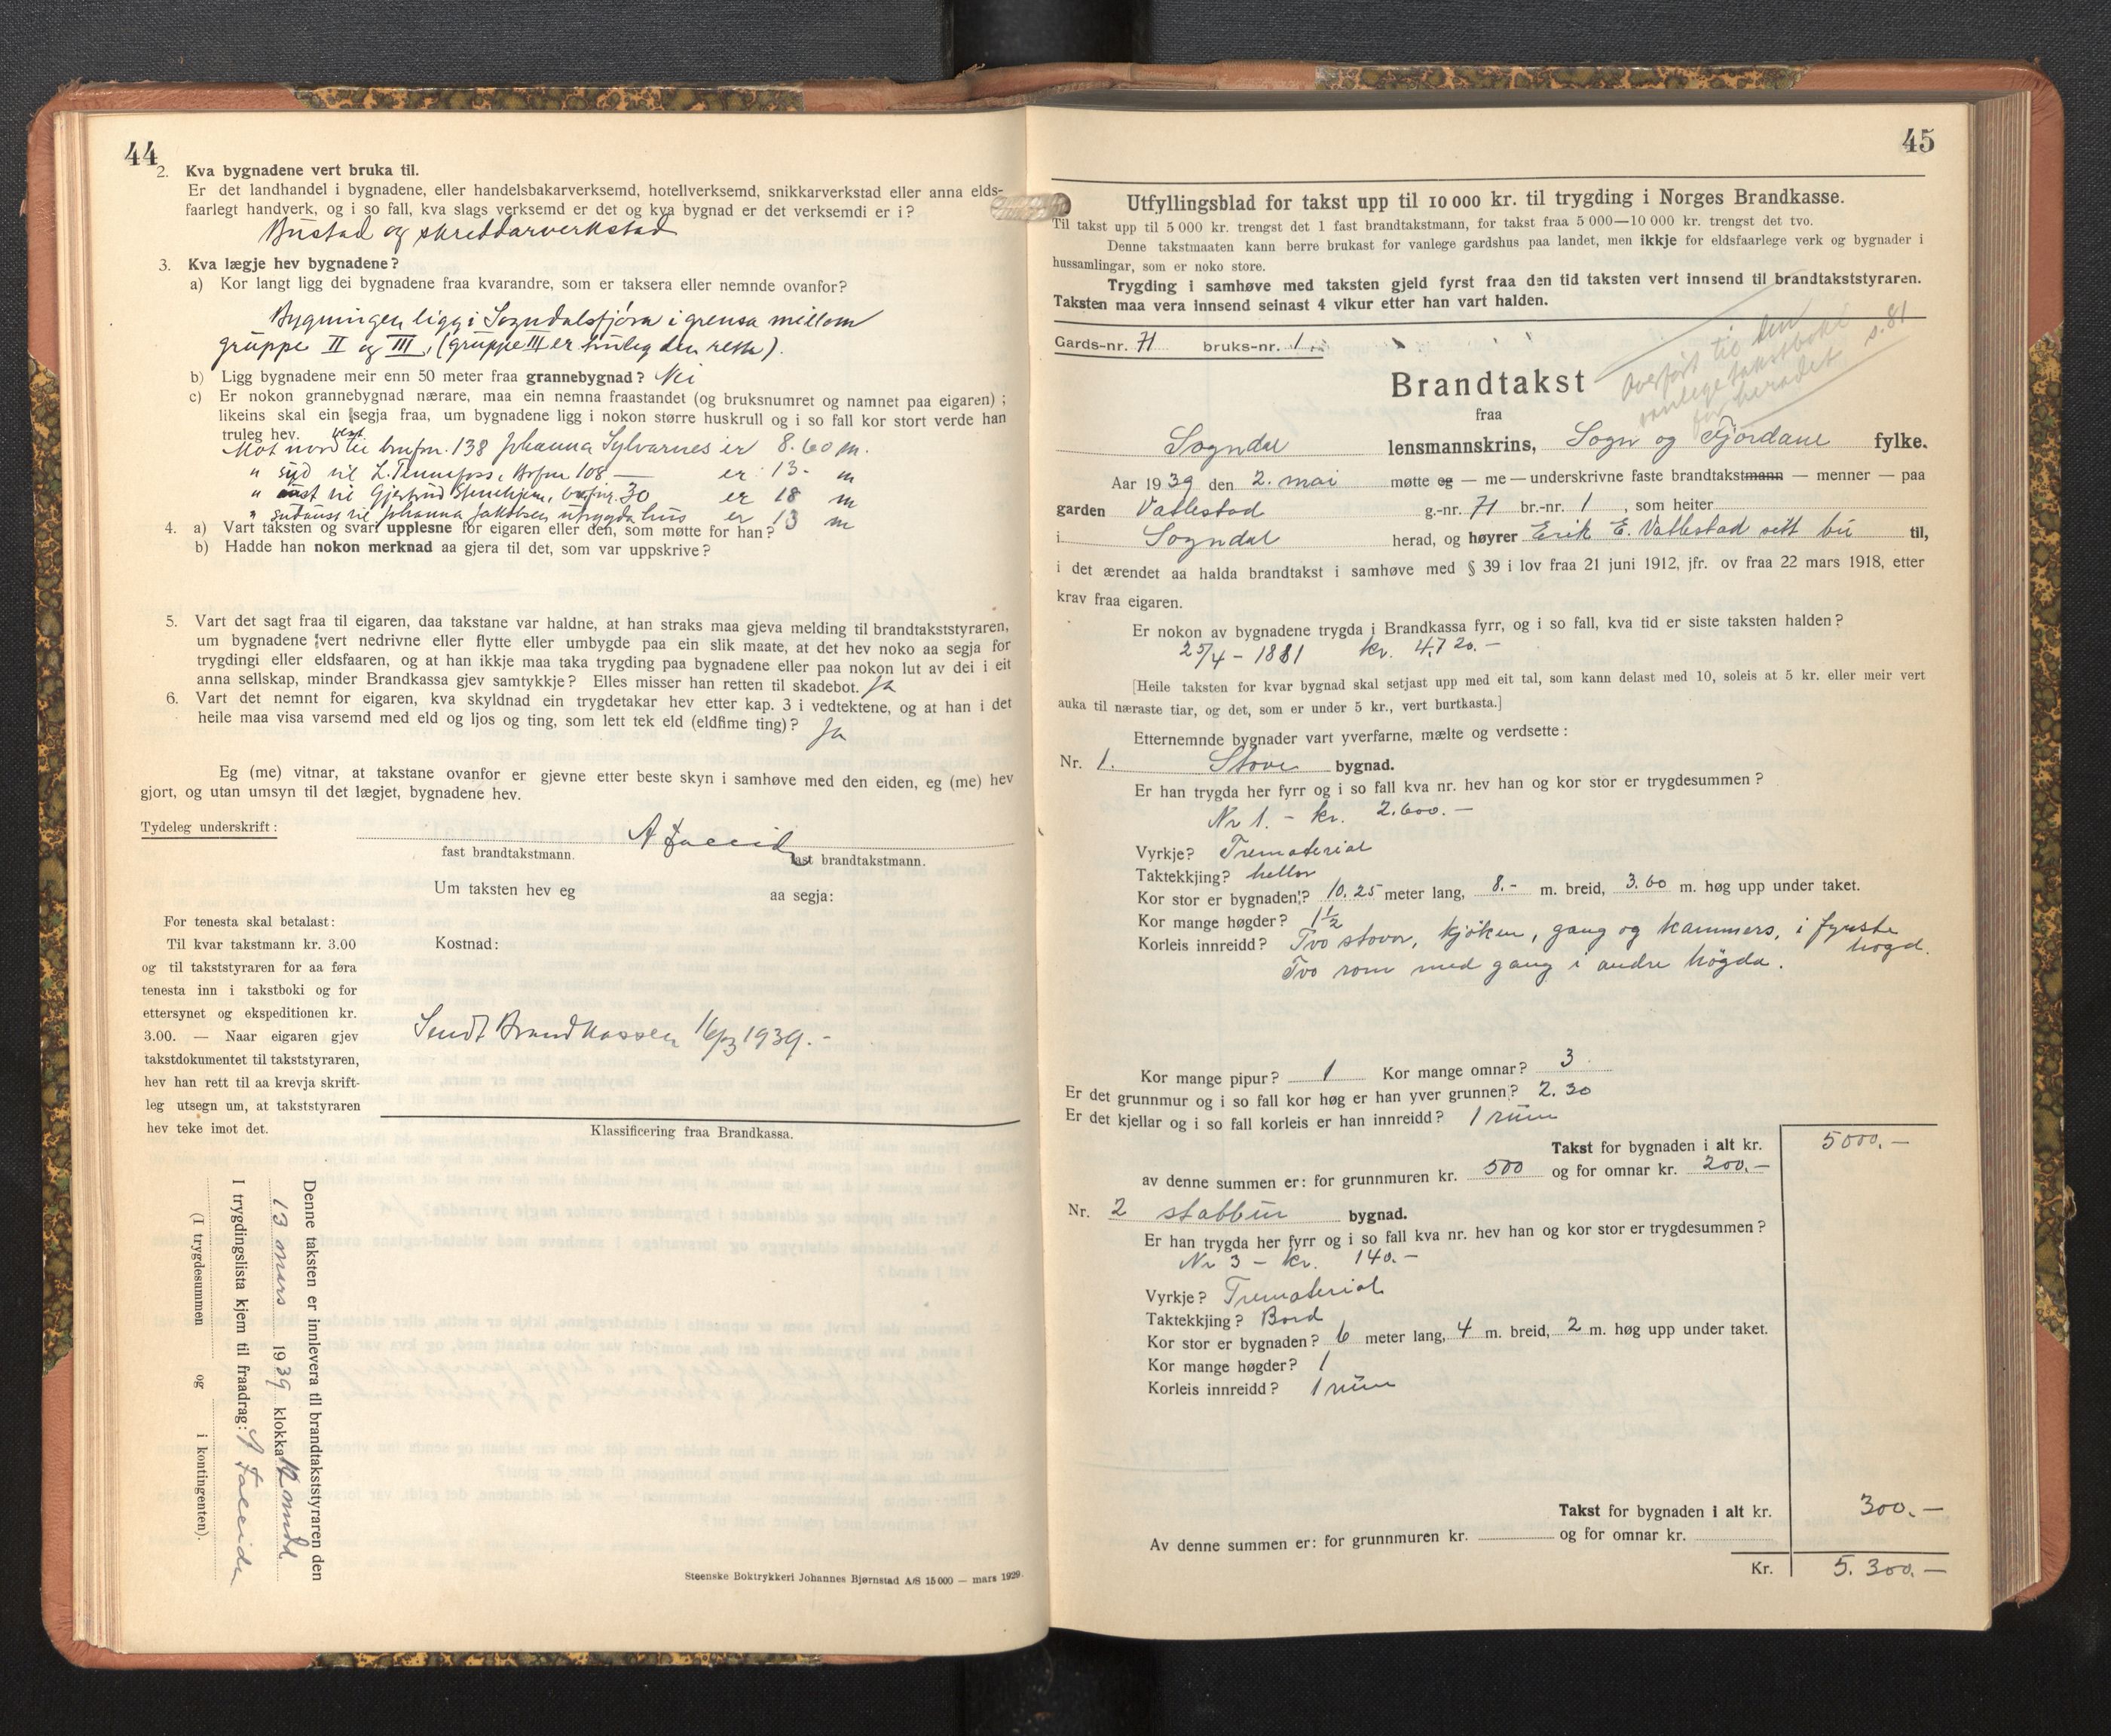 44
2. Kva bygnadene vert bruka til.
Er det landhandel i bygnadene, eller handelsbakarverksemd, hotellverksemd, snikkarverkstad eller anna elds-
faarlegt handverk, og i so fall, kva slags verksemd er det og kva bygnad er det verksemdi er i?
Bustad og skreddarverkstad
3. Kva lægje hev bygnadene?
a) Kor langt ligg dei bygnadene fraa kvarandre, som er taksera eller nemnde ovanfor?
Bygningen ligg i Sogndalsfjöra i grensa millom
gruppe II og III, (gruppe III er truleg den rette).
b) Ligg bygnadene meir enn 50 meter fraa grannebygnad? Nei
c) Er nokon grannebygnad nærare, maa ein nemna fraastandet (og bruksnumret og namnet paa eigaren) ;
likeins skal ein segja fraa, um bygnadene ligg i nokon större huskrull og i so fall kor stort verde han
truleg hev.
Mot nordvest til brufnr. 138 Johanna Sylvarnes er 8.60 m.
" syd til L. , 108 — er 13 - m
" til Gjertrud , 30 er 18 m
" til Johanna Jakobsen utrygda hus er 13 m
4. a) Vart taksten og svari upplesne for eigaren eller den, som møtte for han?
b) Hadde han nokon merknad aa gjera til det, som var uppskrive?
5. Vart det sagt fraa til eigaren, daa takstane var haldne, at han straks maa gjeva melding til brandtakststyraren,
um bygnadene vert nedrivne eller flytte eller umbygde paa ein slik maate, at det hev noko aa segja for
trygdingi eller eldsfaaren, og at han ikkje maa taka trygding paa bygnadene eller paa nokon lut av dei i eit
anna sellskap, minder Brandkassa gjev samtykkje? Elles misser han retten til skadebot. Ja
6. Vart det nemnt for eigaren, kva skyldnad ein trygdetakar hev etter kap. 3 i vedtektene, og at han i det
heile maa visa varsemd med eld og ljos og ting, som lett tek eld (eldfime ting)? Ja
Eg (me) vitnar, at takstane ovanfor er gjevne etter beste skyn i samhøve med den eiden, eg (me) hev
gjort, og utan umsyn til det lægjet, bygnadene hev.
Tydeleg underskrift:
fast brandtakstmann. fast brandtakstmann.
Um taksten hev eg aa segja:
For tenesta skal betalast:
Til kvar takstmann kr. 3.00
og til takststyraren for aa føra
tenesta inn i takstboki og for
ettersynet og ekspeditionen kr.
3.00. — Naar eigaren gjev
takstdokumentet til takststyraren,
hev han rett til aa krevja skrift-
leg utsegn um, at takststyraren
hev teke imot det.
Kostnad:
Sendt Brandkassen 16/3 1939.-
Klassificering fraa Brandkassa.
Denne taksten er innlevera til brandtakststyraren den
13 mars 1939 klokka 12 midd
I trygdingslista kjem til fraadrag:
(I trygdesummen og i kontingenten).
Steenske Boktrykkeri Johannes Bjørnstad A/S 15 000 — mars 1929.
45
Utfyllingsblad for takst upp til 10 000 kr. til trygding i Norges Brandkasse.
Til takst upp til 5 000 kr. trengst det 1 fast brandtakstmann, for takst fraa 5 000—10 000 kr. trengst det tvo.
Denne takstmaaten kann berre brukast for vanlege gardshus paa landet, men ikkje for eldsfaarlege verk og bygnader i
hussamlingar, som er noko store.
Trygding i samhøve med taksten gjeld fyrst fraa den tid taksten vert innsend til brandtakststyraren.
Taksten maa vera innsend seinast 4 vikur etter han vart halden.
Gards-nr. 71 bruks-nr. 1
Overført til den
vanlege takstboki
for heradet s. 81
Brandtakst
fraa
Sogndal lensmannskrins, Sogn og Fjordane fylke.
Aar 1939 den 2. mai møtte eg — me — underskrivne faste brandtakstmann — menner — paa
garden Vatlestad g.-nr. 71 br.-nr. 1 , som heiter
i Sogndal herad, og høyrer Erik E. Vatlestad sitt bu til,
i det ærendet aa halda brandtakst i samhøve med § 39 i lov fraa 21 juni 1912, jfr. ov fraa 22 mars 1918, etter
krav fraa eigaren.
Er nokon av bygnadene trygda i Brandkassa fyrr, og i so fall, kva tid er siste taksten halden?
25/4 - 1881 kr. 4720.-
[Heile taksten for kvar bygnad skal setjast upp med eit tal, som kann delast med 10, soleis at 5 kr. eller meir vert
auka til næraste tiar, og det, som er under 5 kr., vert burtkasta.]
Etternemnde bygnader vart yverfarne, mælte og verdsette :
Nr. 1. Stove bygnad.
Er han trygda her fyrr og i so fall kva nr. hev han og kor stor er trygdesummen ?
Nr 1. - kr. 2.600.-
Vyrkje? Trematerial
Taktekkjing? hellor
Kor stor er bygnaden? 10.25 meter lang, 8.- m. breid, 3.60 m. høg upp under taket.
Kor mange høgder? 1 1/2
Korleis innreidd? Tvo stovor, kjöken, gang og kammers, i fyrste
högd.
Tvo rom med gang i andre högda.
Kor mange pipur? 1 Kor mange omnar? 3
Er det grunnmur og i so fall kor høg er han yver grunnen? 2.30
Er det kjellar og i so fall korleis er han innreidd? 1 rüm
Takst for bygnaden i alt kr. 5000.—
av denne summen er: for grunnmuren kr. 500 og for omnar kr. 200.—
Nr. 2 stabbur bygnad.
Er han trygda her fyrr og i so fall kva nr. hev han og kor stor er trygdesummen ?
Nr 3 - kr. 140.-
Vyrkje? Trematerial
Taktekkjing? Bord
Kor stor er bygnaden? 6 meter lang, 4 m. breid, 2 m. høg upp under taket.
Kor mange høgder? 1
Korleis innreidd? 1 rüm
Takst for bygnaden i alt kr. 300.—
Av denne summen er: for grunnmuren kr. og for omnar kr.
Kr. 5.300.—